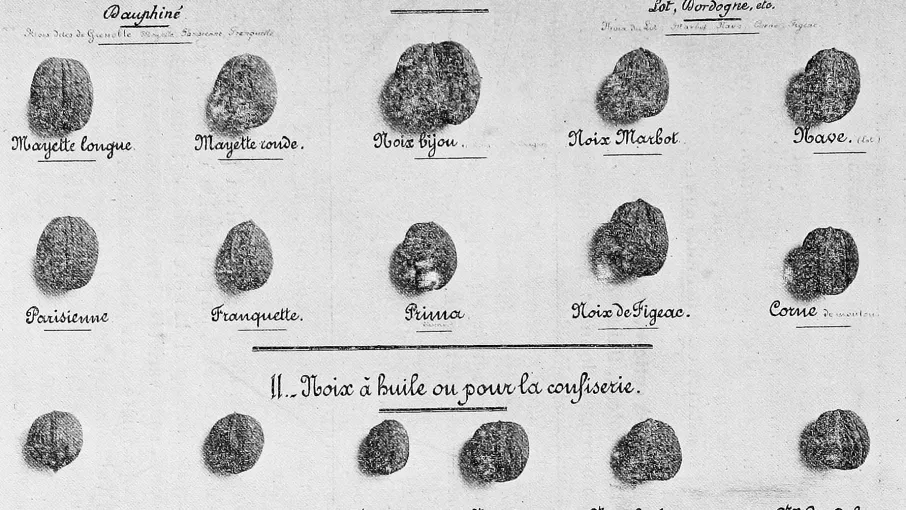 Dauphiné
Lot, Dordogne, etc.
Noix dites de Grenoble Mayette Parisienne Franquette
Noix du Lot Marbot Nave Corne Figeac
Mayette longue.
Mayette ronde.
Noix bijou.
Noix Marbot
Nave. (Lot)
Parisienne
Franquette.
Prima
Noix de Figeac.
Corne de mouton.
II._ Noix à huile ou pour la confiserie.